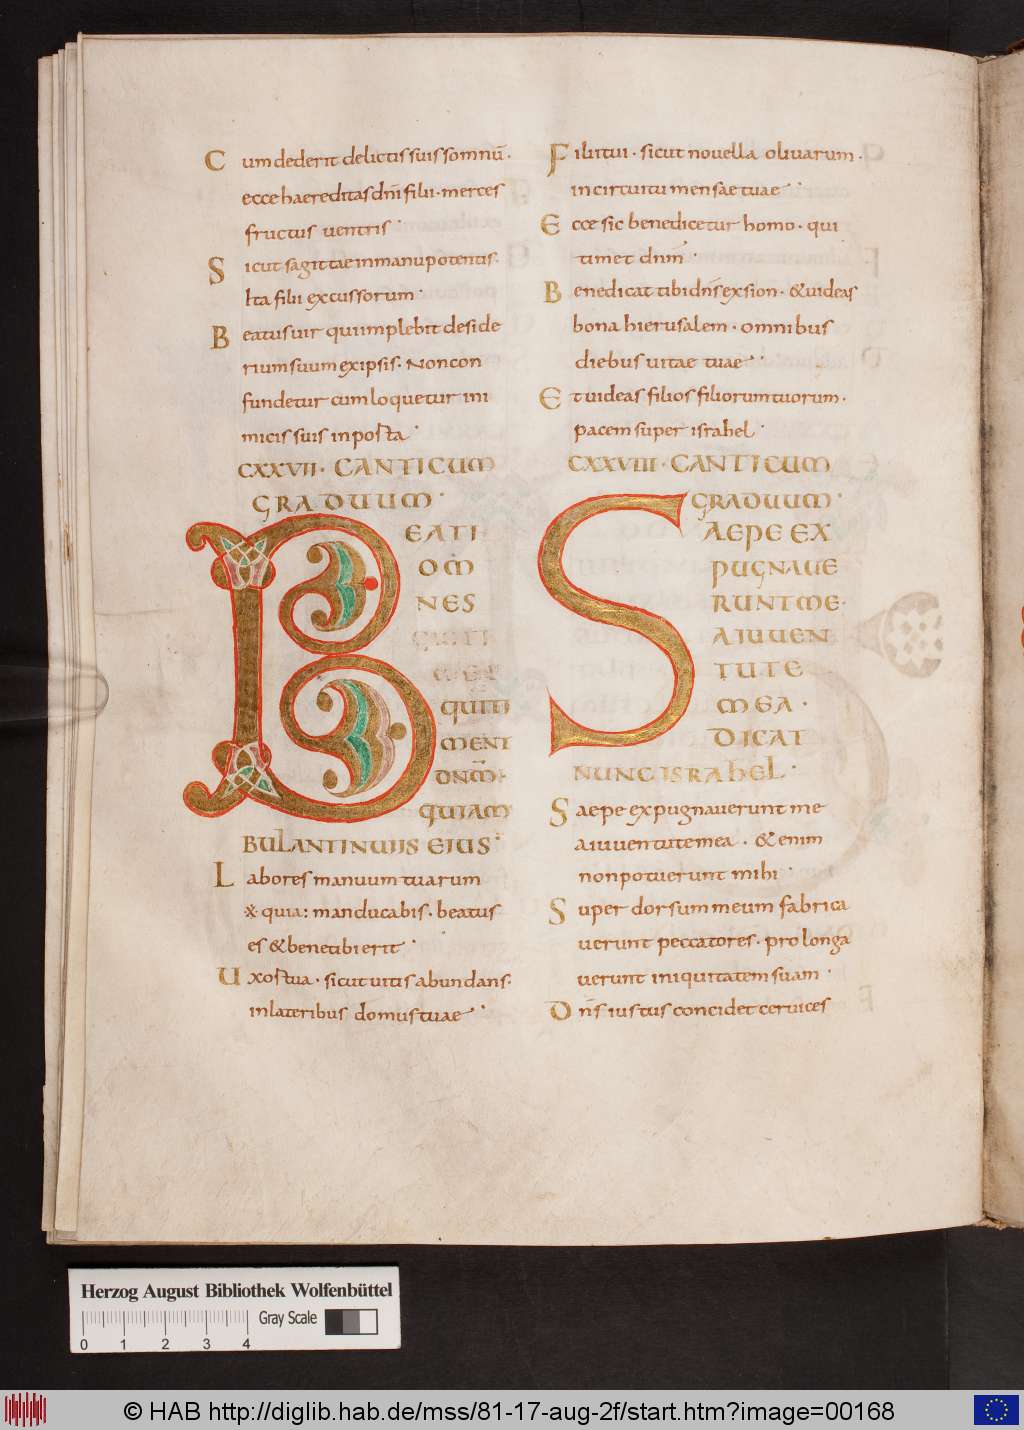 Cum dederit delictis suis somnū·
ecce haereditas dn̄i filii · merces
fructus ventris
Sicut sagittae in manu potentis·
Ita filii excussorum·
Beatus vir qui implebit deside
rium suum ex ipsis· Non con
fundetur cum loquetur ini
micis suis in porta
CXXVII· CANTICUM
GRADUUM·
BEATI
OM
NES
QUI TI
MENT
DNM̄·
QUIAM
BULANT IN VIIS EIUS·
Labores manuum tuarum
quia: manducabis· beatus
es & bene tibi erit
Uxor tua· sicut vitis abundans·
in lateribus domus tuae
Filii tui· sicut novella olivarum·
in circuitu mensae tuae
Ecce sic benedicetur homo· qui
timet dnm̄
Benedicat tibi dn̄s ex sion· & videas
bona hierusalem· omnibus
diebus vitae tuae
Et videas filios filiorum tuorum·
pacem super israhel
CXXVIII· CANTICUM
GRADUUM·
SAEPE EX
PUGNAVE
RUNT ME·
A IUVEN
TUTE
MEA·
DICAT
NUNC ISRAHEL·
Saepe expugnaverunt me
a iuventute mea· & enim
non potuerunt mihi
Super dorsum meum fabrica
verunt peccatores· prolonga
verunt iniquitatem suam
Dn̄s iustus concidet cervices
Herzog August Bibliothek Wolfenbüttel
Gray Scale
0 1 2 3 4
© HAB http://diglib.hab.de/mss/81-17-aug-2f/start.htm?image=00168